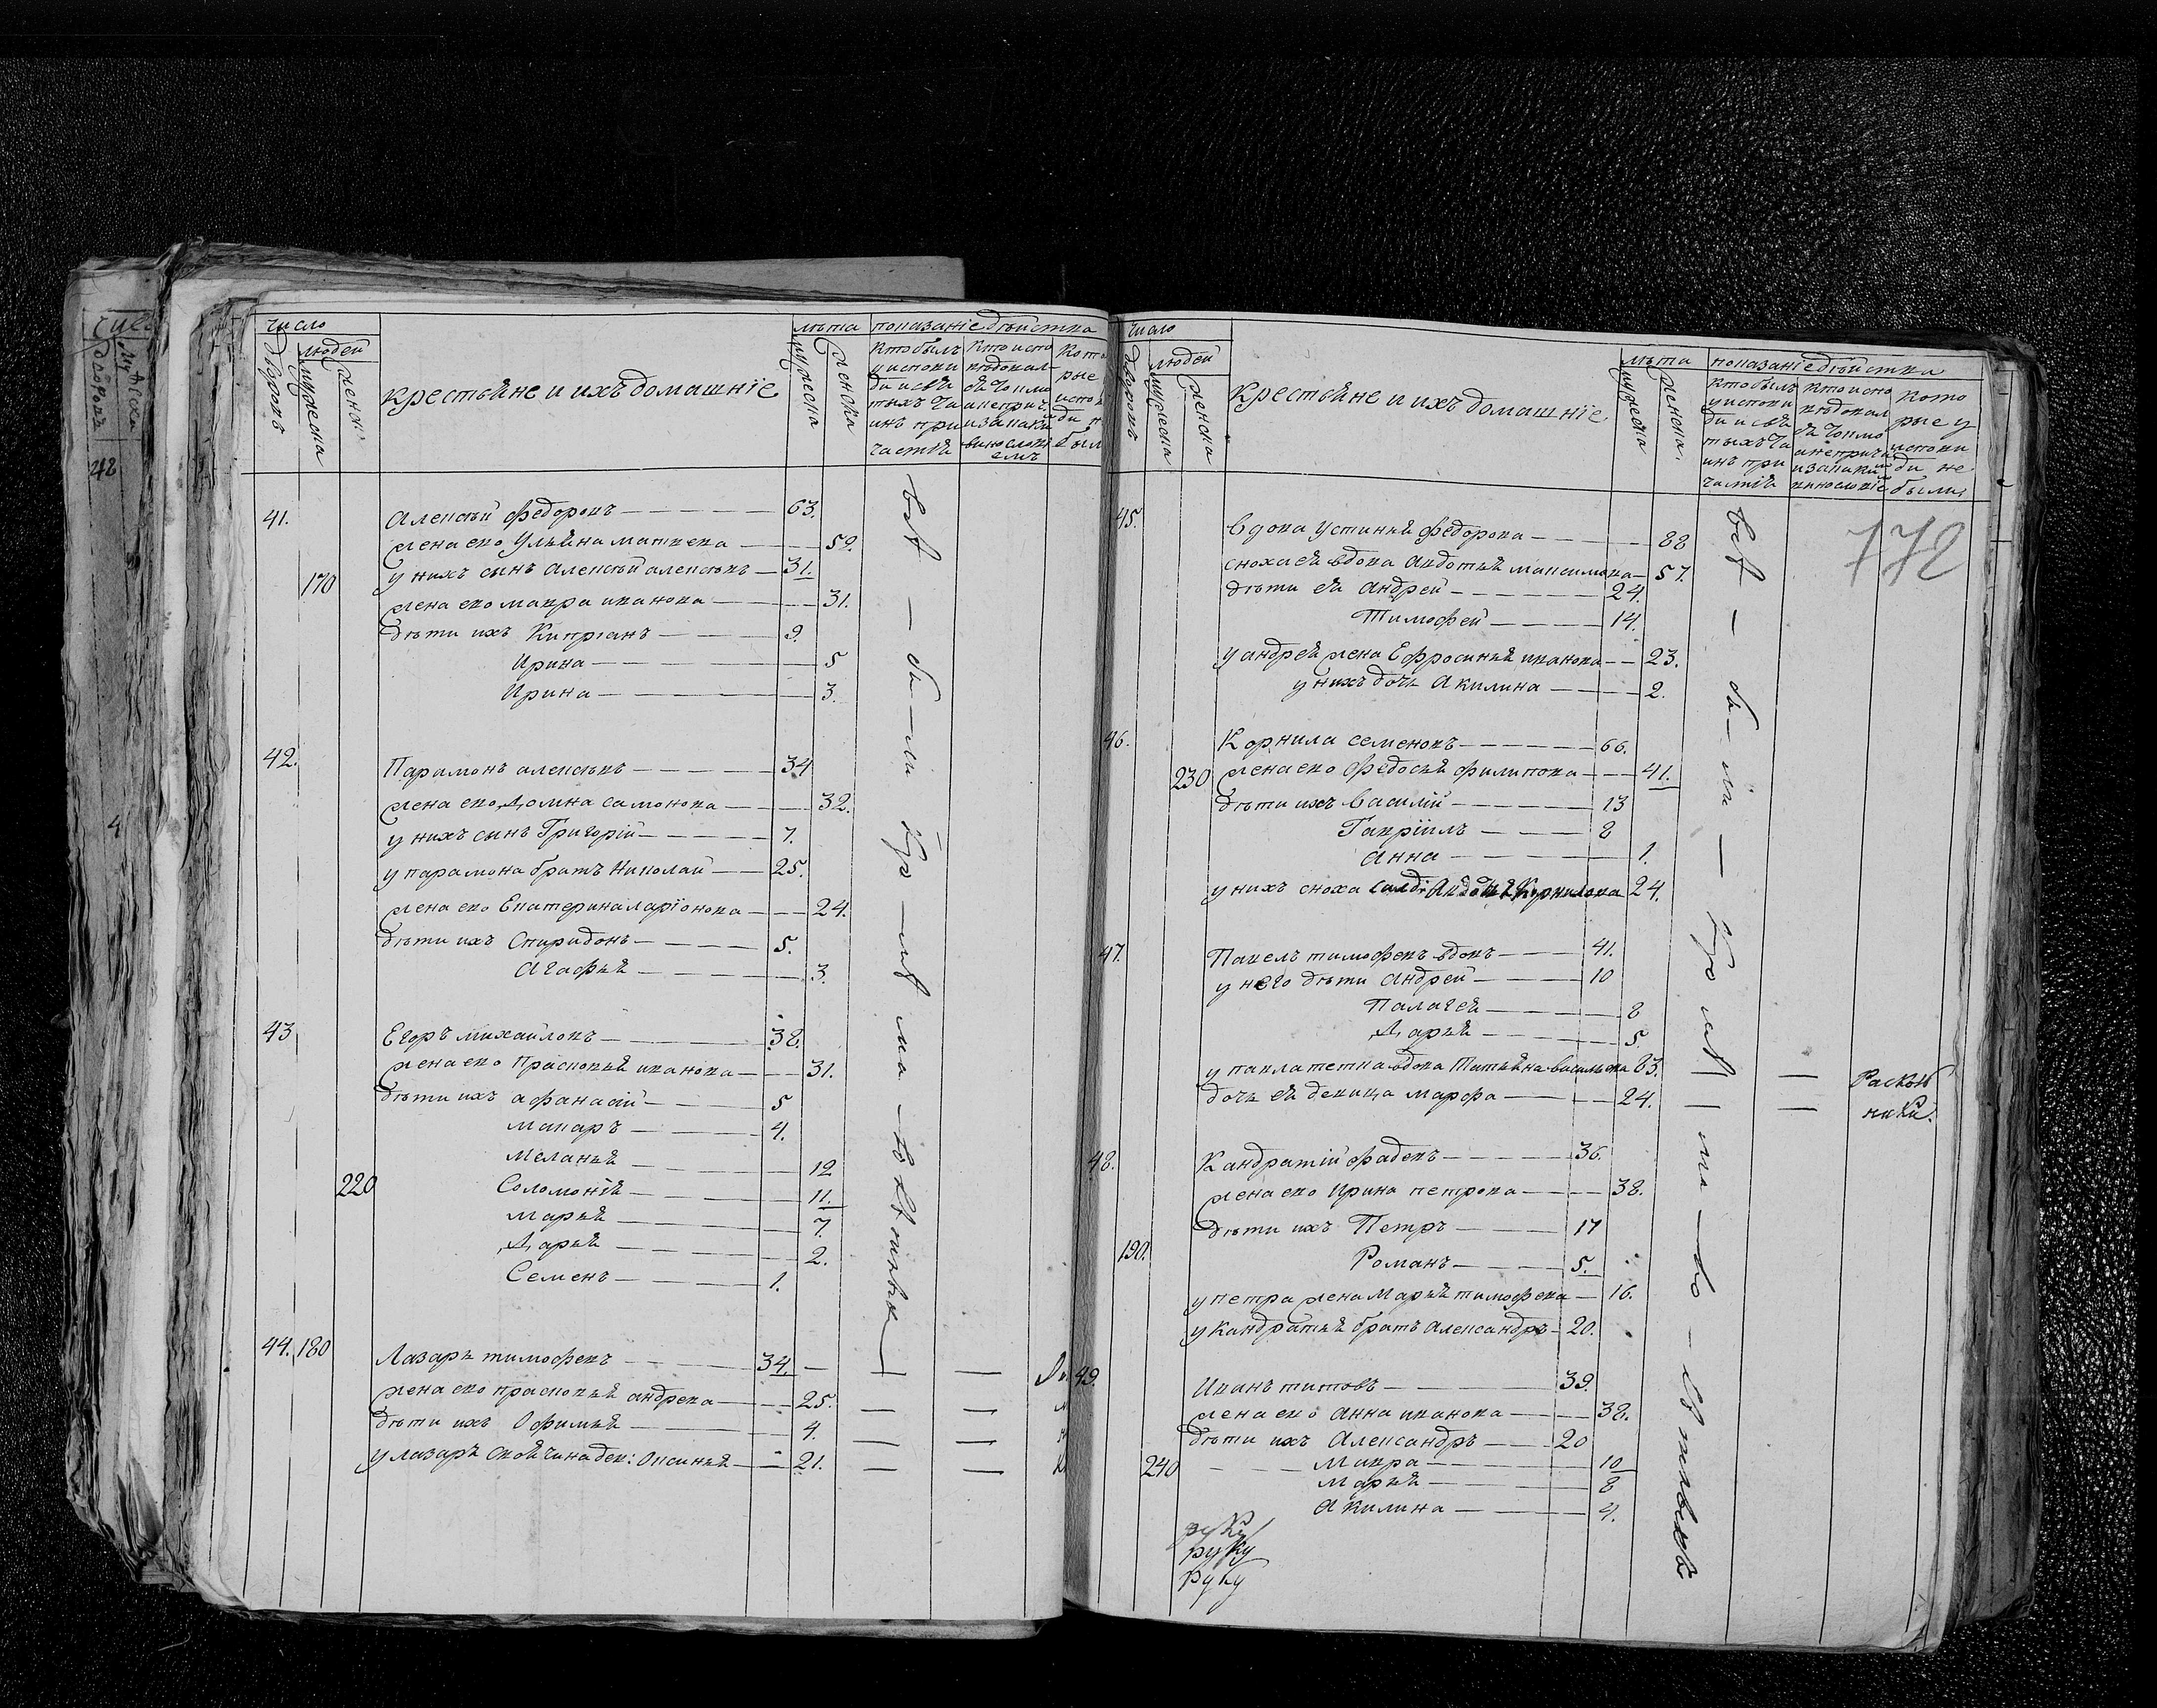 число
дворовъ
людей
мужеска
женска
крестьяне и ихъ домашніе
лѣта
мужеска
женска
показаніе дѣйства
41.
Алексѣй Федоровъ — 63.
жена ево Ульяна матвева — 59.
170
у нихъ сынъ Алексѣй алексѣевъ — 31.
жена ево мавра иванова — 31.
дѣти ихъ Кипріанъ — 9.
Ирина — 5
Ирина — 3.
42.
Парамонъ алексѣевъ — 34
жена ево Домна самонова — 32.
у нихъ сынъ Григорій — 7.
у парамона братъ Николай — 25.
жена ево Екатерина ларіонова — 24.
дѣти ихъ Спиридонъ — 5.
Агафья — 3.
43
Егоръ михайловъ — 38.
жена ево Прасковья иванова — 31.
дѣти ихъ афанасій — 5
макаръ — 4.
меланья — 12
220
Соломонія — 11.
марья — 7.
Дарья — 2.
Семенъ — 1.
44. 180
Лазарь тимофевъ — 34.
жена ево прасковья андрева — 25.
дѣти ихъ Офимья — 4.
у лазаря своячина дев: Оксинья — 21.
число
дворовъ
людей
мужеска
женска
крестьяне и ихъ домашніе
лѣта
мужеска
женска
показаніе дѣйства
кто былъ
у испови
ди и свя
тыхъ та
инъ при
частія
кото
рые у
испови
ди не
были
772
45.
вдова Устинья федорова — 88
сноха ея вдова Авдотья максимова — 57.
дѣти ея Андрей — 24.
Тимофей — 14.
у андрея жена Ефросинья иванова — 23.
у нихъ дочь Акилина — 2.
46.
Корнила семеновъ — 66.
230
жена ево Федосья филипова — 41.
дѣти ихъ Василій — 13
Гавріилъ — 8
Анна — 1.
у нихъ сноха Корнилова 24.
47.
Павелъ тимофевъ вдовъ — 41.
у него дѣти Андрей — 10
Палагея — 8
Дарья — 5.
у павла тетка вдова Татьяна васильева 63.
дочь ея девица марфа — 24.
Расколь
ники.
48.
Кандратій фадевъ — 36.
жена ево Ирина петрова — 38.
дѣти ихъ Петръ — 17
190.
Романъ — 5.
у петра жена Марья тимофева — 16.
у Кандратья братъ Александръ — 20.
49.
Иванъ титовъ — 39.
жена ево Анна иванова — 38.
дѣти ихъ Александръ — 20
240
Мавра — 10
Марья — 8
Акилина — 4.
руку
руку
руку